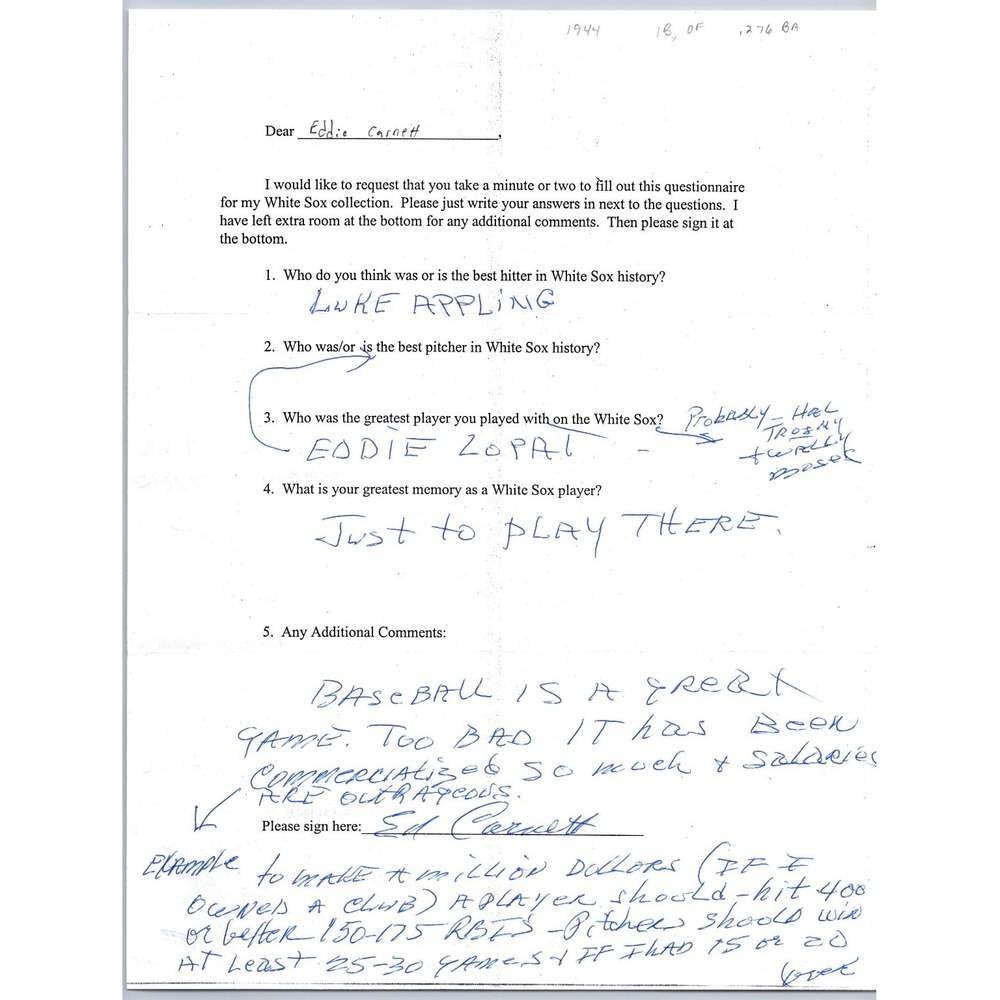 1944 1B, OF .276 BA
Dear Eddie Carnett,
I would like to request that you take a minute or two to fill out this questionnaire
for my White Sox collection. Please just write your answers in next to the questions. I
have left extra room at the bottom for any additional comments. Then please sign it at
the bottom.
1. Who do you think was or is the best hitter in White Sox history?
LUKE APPLING
2. Who was/or is the best pitcher in White Sox history?
3. Who was the greatest player you played with on the White Sox?
Probably - Hal
TROSKY
+ Wally
moses
EDDIE LOPAT -
4. What is your greatest memory as a White Sox player?
Just to PLAY THERE.
5. Any Additional Comments:
BASEBALL IS A GREAT
GAME. TOO BAD IT has BEEN
COMMERCIALized SO much + SALARIES
ARE OUTRAGEOUS.
Please sign here: Ed Carnett
EXAMPLE to MAKE A MILLION DOLLORS (IF I
OWNED A CLUB) A PLAYER should - hit 400
or better 150-175 RBI'S - Pitchers should WIN
AT LEAST 25-30 GAMES + IF I HAD 15 or 20
over